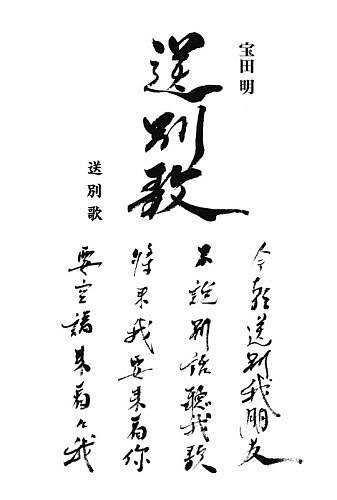 宝田 明
送別歌
送別歌
今朝送別我朋友
不說別話聽我歌
將來我要来看你
要它請来看看我